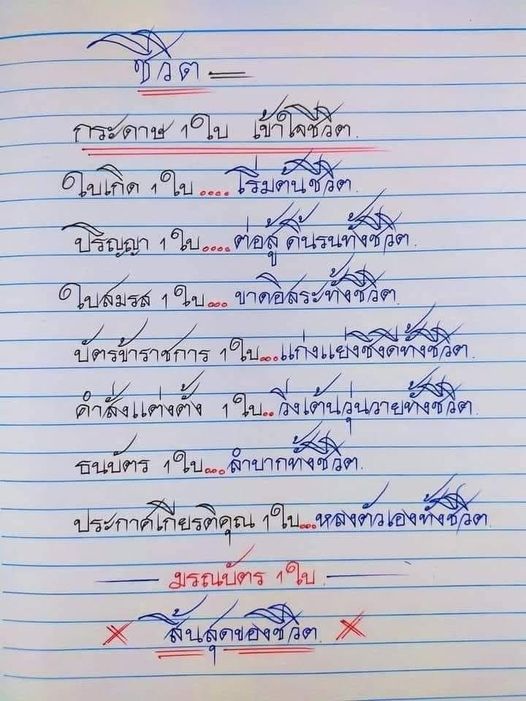 ชีวิต
กระดาษ 1 ใบ เข้าใจชีวิต.
ใบเกิด 1 ใบ .... เริ่มต้นชีวิต.
ปริญญา 1 ใบ .... ต่อสู้ ดิ้นรนทั้งชีวิต.
ใบสมรส 1 ใบ ... ขาดอิสระทั้งชีวิต.
บัตรข้าราชการ 1 ใบ ... แก่งแย่งชิงดีทั้งชีวิต.
คำสั่งแต่งตั้ง 1 ใบ .. วิ่งเต้นวุ่นวายทั้งชีวิต.
ธนบัตร 1 ใบ ... ลำบากทั้งชีวิต.
ประกาศเกียรติคุณ 1 ใบ ... หลงตัวเองทั้งชีวิต.
มรณบัตร 1 ใบ.
สิ้นสุดของชีวิต.